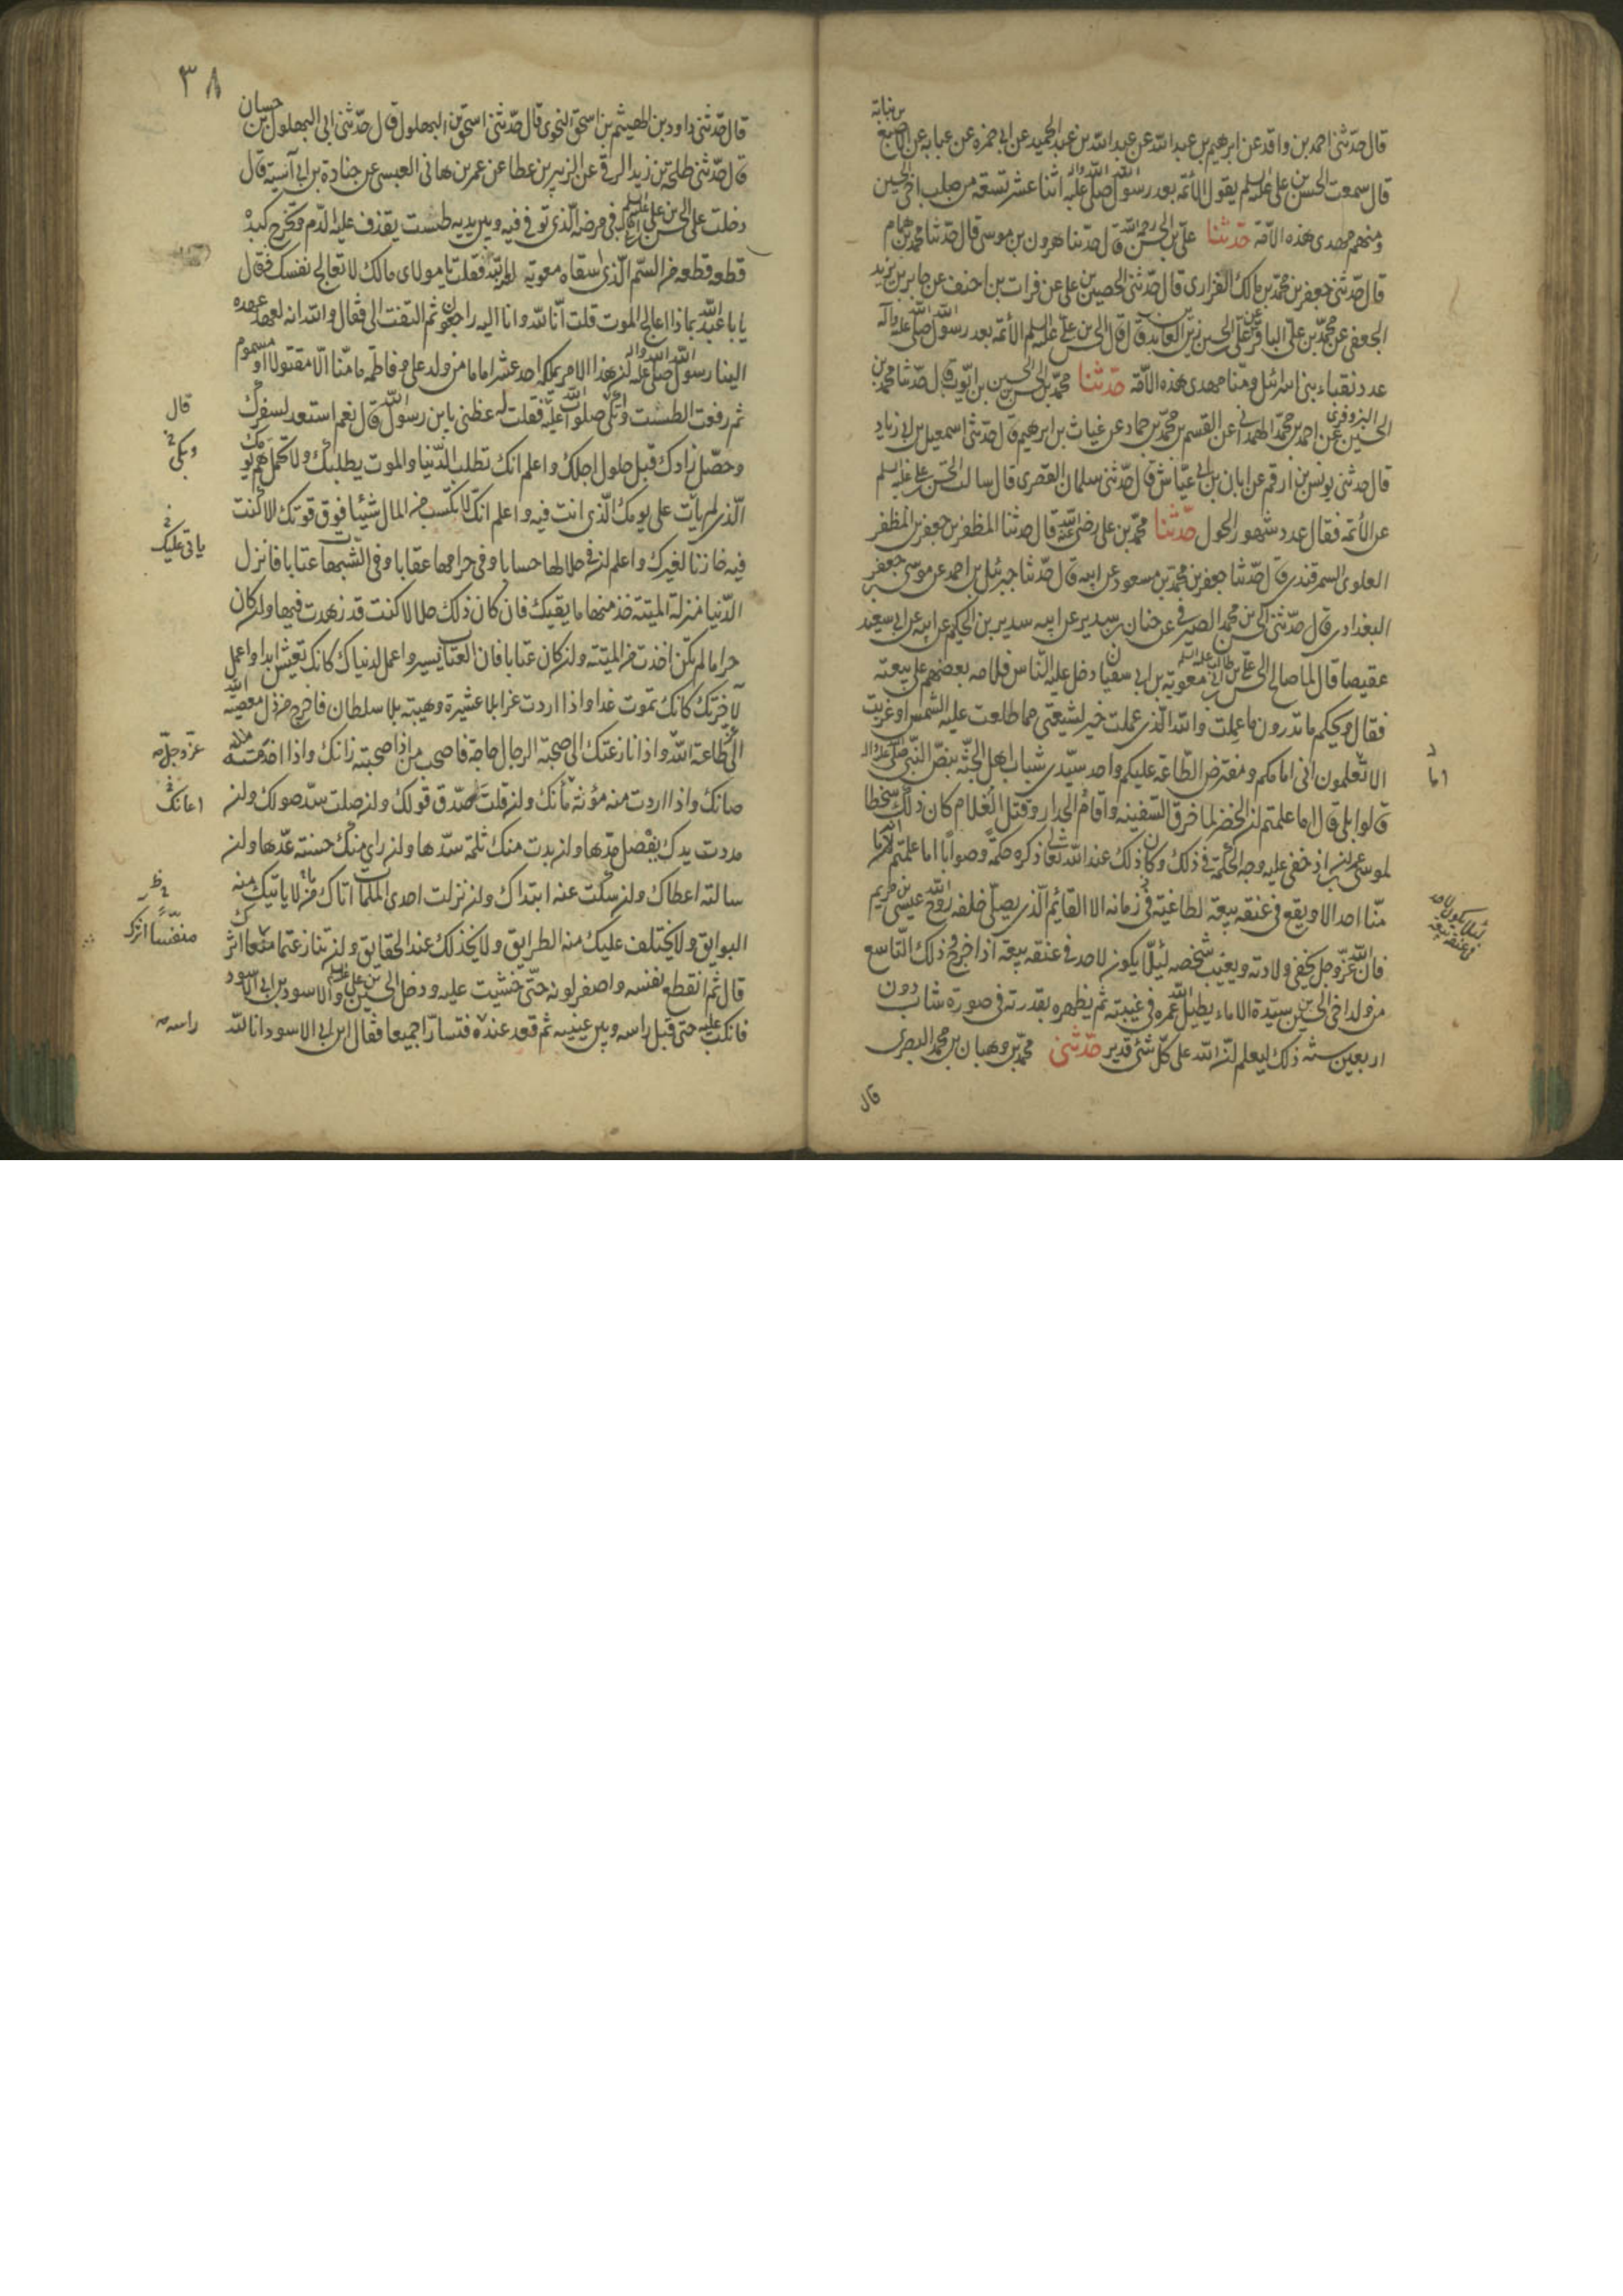 قال حدّثنى احمد بن واقد عن ابرهيم بن عبد الله عن عبد الله بن عبد الحميد عن ابى ضمره عن عبايه عن الاصبغ
بن نباته
قال سمعت الحسن بن على عليه السلم يقول الائمّه بعد رسول الله صلى الله عليه واله اثنا عشر تسعة من صلب اخى الحسين
ومنهم مهدى هذه الامّة حدّثنا علىّ بن الحسن رحمه الله قال حدّثنا هرون بن موسى قال حدّثنا محمد بن همام
قال حدّثنى جعفر بن محمّد بن مالك الفزارى قال حدّثنى الحصين بن على عن فرات بن احنف عن جابر بن يزيد
الجعفى عن محمّد بن علىّ الباقر عن علىّ بن الحسين زين العابدين قال قال الحسن بن علىّ عليه السلم الائمّه بعد رسول الله صلى الله عليه وآله
عدد نقباء بنى اسرائيل ومنّا مهدى هذه الامّة حدّثنا محمّد بن الحسن بن الحسين بن ايّوب قال حدّثنا محمد بن
الحسين البزوفرى عن احمد بن محمّد الهمدانى عن القسم بن محمّد بن حماد عن غياث بن ابرهيم قال حدّثنى اسمعيل بن ابى زياد
قال حدّثنى يونس بن ارقم عن ابان بن ابى عيّاش قال حدّثنى سلمان القصرى قال سالت الحسن بن على عليه السلم
عن الائمّه فقال عدد شهور الحول حدّثنا محمّد بن على رضى الله عنه قال حدثنا المظفر بن جعفر بن المظفر
العلوى السمرقندى قال حدّثنا جعفر بن محمّد بن مسعود عن ابيه قال حدّثنا جبرئيل بن احمد عن موسى بن جعفر
البغدادى قال حدّثنى الحسن بن محمد الصيرفى عن حنان بن سدير عن ابيه سدير بن الحكيم عن ابيه عن ابى سعيد
عقيصا قال لما صالح الحسن بن علىّ بن ابى طالب عليه السلم معوية بن ابى سفيان دخل عليه الناس فلامه بعضهم على بيعته
فقال ويحكم ما تدرون ما عملت والله الّذى عملت خير لشيعتى مما طلعت عليه الشمس او غربت
الا تعلمون انى امامكم ومفترض الطّاعة عليكم واحد سيّدى شباب اهل الجنّة بنصّ النّبى صلى الله عليه واله
اما
قالوا بلى قال اما علمتم ان الخضر لما خرق السّفينه واقام الجدار وقتل الغلام كان ذلك سخطا
لموسى بن عمران اذ خفى عليه وجه الحكمة فى ذلك وكان ذلك عند الله تعالى ذكره حكمة وصوابا اما علمتم انّه ما
منّا احد الا ويقع فى عنقه بيعة الطاغية فى زمانه الا القائم الّذى يصلّى خلفه روح الله عيسى بن مريم
لئلا يكون لاحد
فى عنقه بيعة
فان الله عزّ وجل يخفى ولادته ويغيب شخصه لئلّا يكون لاحد فى عنقه بيعة اذا خرج ذلك التّاسع
من ولد اخى الحسين بن سيّدة الاماء يطيل الله عمره فى غيبته ثم يظهره بقدرته فى صورة شاب دون
اربعين سنة ذلك ليعلم انّ الله على كلّ شئ قدير حدّثنى محمّد بن وهبان بن محمد البصرى
قال
٣٨
قال حدّثنى داود بن الهيثم بن اسحق النحوى قال حدّثنى اسحق بن البهلول قال حدّثنى ابى البهلول بن حسان
قال حدّثنى طلحة بن زيد الرقى عن الزبير بن عطا عن عمر بن هانى العبسى عن جنادة بن ابى آمية قال
دخلت على الحسن بن على عليه السلم فى مرضه الّذى توفى فيه وبين يديه طست يقذف عليه الدّم ويخرج كبده
قطعه قطعه من السّم الّذى اسقاه معوية فقلت يا مولاى مالك لا تعالج نفسك فقال
يا با عبد الله بماذا اعالج الموت قلت انّا لله وانا اليه راجعون ثم التفت الى فقال والله انه لعهد عهده
الينا رسول الله صلى الله عليه واله ان هذا الامر يملكه احد عشر اماما من ولد على وفاطمة ما منّا الّا مقتول او مسموم
ثم رفعت الطست واتكى صلوات الله عليه فقلت له عظنى يا بن رسول الله قال نعم استعد لسفرك
قال
وبكى
وحصّل زادك قبل حلول اجلك واعلم انك تطلب الدّنيا والموت يطلبك ولا تحمل همّ يومك
الّذى لم يات على يومك الّذى انت فيه واعلم انك لا تكسب من المال شيئا فوق قوتك الا كنت
ياتى عليك
فيه خازنا لغيرك واعلم ان فى حلالها حسابا وفى حرامها عقابا وفى الشّبهات عتابا فانزل
الدّنيا منزلة الميتة خذ منها ما يكفيك فان كان ذلك حلالا كنت قد زهدت فيها وان كان
حراما لم تكن اخذت من الميتة وان كان عتابا فان العتاب يسير واعمل لدنياك كانك تعيش ابدا واعمل
لآخرتك كانك تموت غدا واذا اردت عزا بلا عشيرة وهيبة بلا سلطان فاخرج من ذل معصية الله
الى طاعة الله واذا نازعتك الى صحبة الرجال حاجة فاصحب من اذا صحبته زانك واذا خدمته
عزّ وجلّ صح
صانك واذا اردت منه مؤنة مأنك وان قلت صدّق قولك وان صلت سدّ صولك وان
اعانك
مددت يدك بفضل مدّها وان بدت منك ثلمة سدّها وان راى منك حسنة عدّها وان
سالته اعطاك وان سكت عنه ابتداك وان نزلت احدى الملمات اتاك من لا ياتيك منه
البوايق ولا يختلف عليك منه الطرايق ولا يخذلك عند الحقايق وان تنازعتما اثر
منفسّا اثرك
قال ثم انقطع نفسه واصفر لونه حتّى خشيت عليه ودخل الحسين بن على عليه السلم والاسود بن ابى الاسود
فانكب عليه حتى قبل راسه وبين عينيه ثم قعد عنده فتسارّا جميعا فقال ابن ابى الاسود انا لله
راسه صح